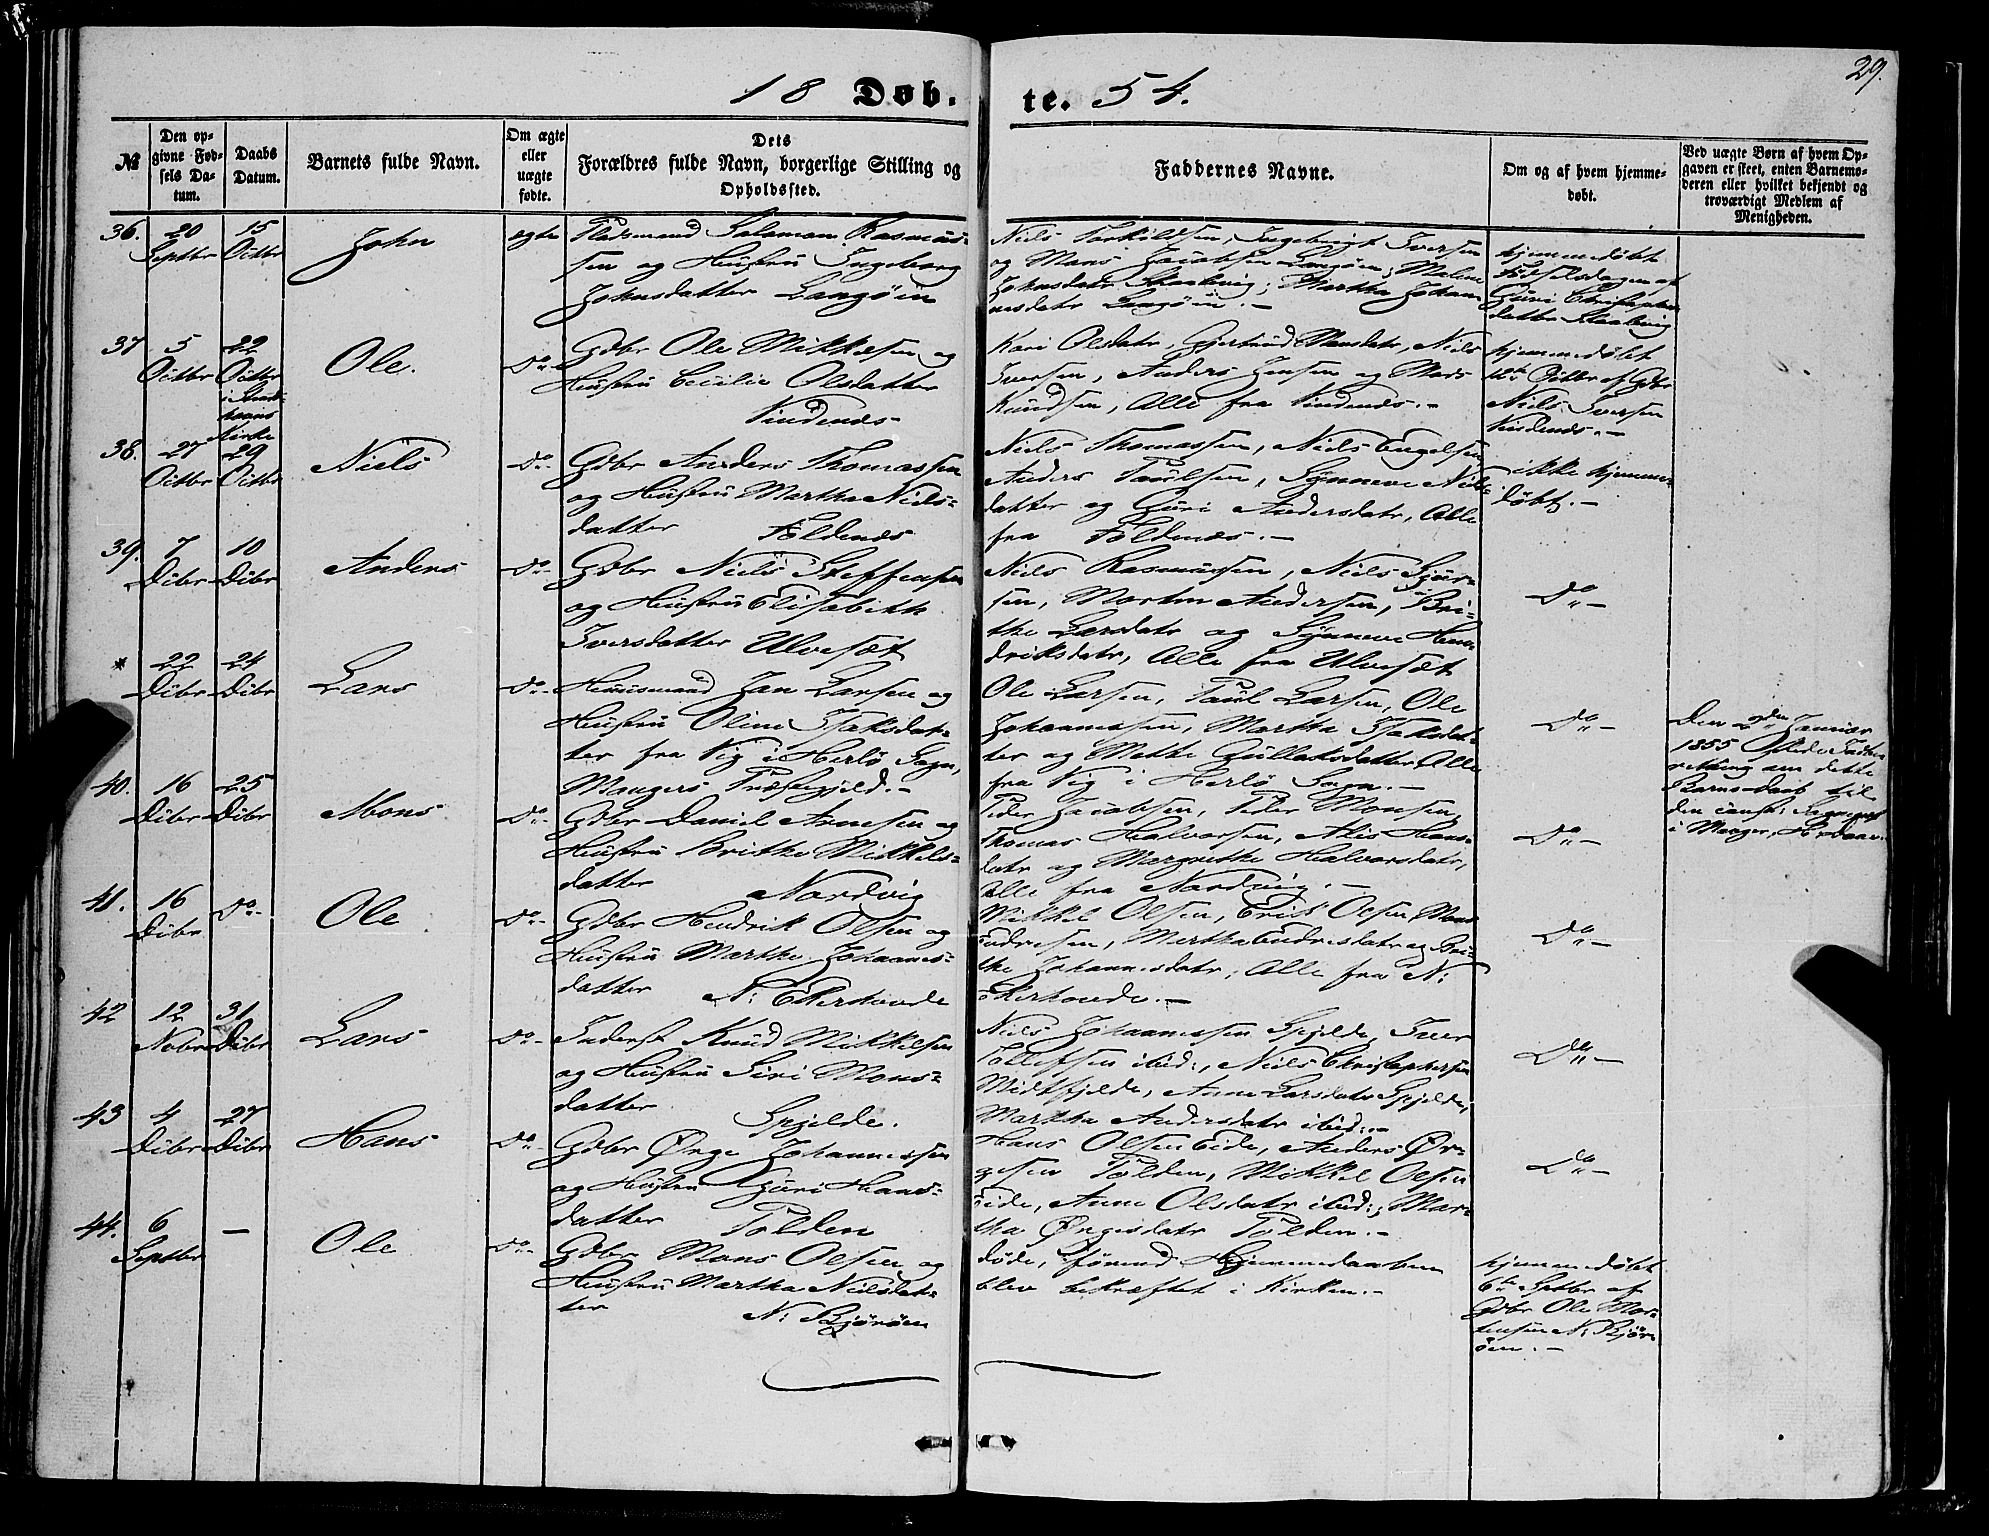 29.
18 Døb-te. 54.
№
Den opgivne Fødsels Datum.
Daabs Datum.
Barnets fulde Navn.
Om ægte eller uægte fødte.
Dets Forældres fulde Navn, borgerlige Stilling og Opholdssted.
Faddernes Navne.
Om og af hvem hjemmedøbt.
Ved uægte Børn af hvem Opgaven er skeet, enten Barnemoderen eller hvilket bekjendt og troværdigt Medlem af Menigheden.
36. 20 Septbr 15 Octbr John ægte
Pladsmand Salamon Rasmus-
sen og Hustru Ingeborg
Johnsdatter Langøen
Niels Torkildsen, Ingebrigt Iversen
og Mons Jacobsen Langøen; Malene
Johnsdatr ; Martha Johan-
nesdatr Langøen.-
hjemmedøbt
Fødselsdagen af
Guri Christophers
datter
37 5 Octbr 22 Octbr
Kirke
Ole. Do-
Gdbr Ole Mikkelsen og
Hustru Cecilie Olsdatter
Vindenes
Kari Olsdatr, Gjertrud Monsdatr, Niels
Iversen, Anders Jensen og Mons
Knudsen, Alle fra Vindenes.-
hjemmedøbt
Octbr af Gdbr
Niels Iversen
Vindenes.-
38. 27 Octbr 29 Octbr Niels Do-
Gdbr Anders Thomassen
og Hustru Martha Niels-
datter Foldenes
Niels Thomassen, Niels Engelsen
Anders Poulsen, Synneve Niels-
datter og Guri Andersdatr, Alle
fra Foldenes.-
ikke hjemme-
døbt.-
39. 7 Dcbr 10 Dcbr Anders Do-
Gdbr Niels Steffensen
og Hustru Elisabeth
Iversdatter Ulvesæt
Niels Rasmussen, Niels
sen, Morten Andersen, Bri-
the Larsdatr og Synneve Hen-
driksdatr, Alle fra Ulvesæt
Do-
* 22 Dcbr 24 Dcbr Lars Do-
Huusmand Jan Larsen og
Hustru Oline Isaksdat-
ter fra Vig i Herlø Sogn,
Mangers Præstegjeld.-
Ole Larsen, Poul Larsen, Ole
Johannessen, Martha Isaksdat-
ter og Mette Gullaksdatter, Alle
fra Vig i Herlø Sogn.-
Do-
Den 2den Januar
1855
retning om dette
Barns Daab til
den const: Sognepræst
i Manger,
40. 16 Dcbr 25 Dcbr Mons Do-
Gdbr Daniel Arnesen og
Hustru Brithe Mikkels-
datter Nordvig
Peder Jacobsen, Peder Monsen,
Thomas Halvorsen, Alis Hans-
datr og Margrethe Halvorsdatr,
Alle fra Nordvig.-
Do-
41. 16 Dcbr Do- Ole Do-
Gdbr Hendrik Olsen og
Hustru Marthe Johannes-
datter N: Ekerhovde
Mikkel Olsen, Erik Olsen, Mons
Endresen, Martha Endresdatr og Bri-
the Johannesdatr, Alle fra N:
Ekerhovde.-
Do-
42 12 Nobr 31 Dcbr Lars Do-
Inderst Knud Mikkelsen
og Hustru Siri Mons-
datter Spjelde.
Niels Johannessen Spjelde, Iver
Tollefsen ibid:, Niels Christophersen
Midtfjelde, Anne Larsdatr Spjelde,
Martha Andersdatr ibid:-
Do-
43 4 Dcbr 27 Dcbr Hans Do-
Gdbr Ørge Johannessen
og Hustru Guri Hans-
datter Folden
Hans Olsen Eide, Anders Ør-
gesen Folden, Mikkel Olsen
Eide, Anne Olsdatr ibid:; Mar-
tha Ørgesdatr Folden.-
Do-
44. 6 Septbr - Ole Do-
Gdbr Mons Olsen og
Hustru Martha Nielsdat-
ter N: Bjørøen
døde, førend Hjemmedaaben
blev bekræftet i Kirken.-
hjemmedøbt
6te Septbr af
Gdbr Ole Mor-
tensen N: Bjør-
øen.-